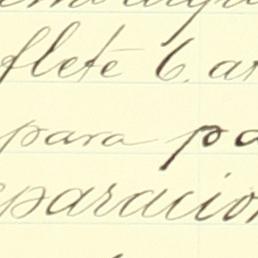 flete 6. a
para pa
eparacion